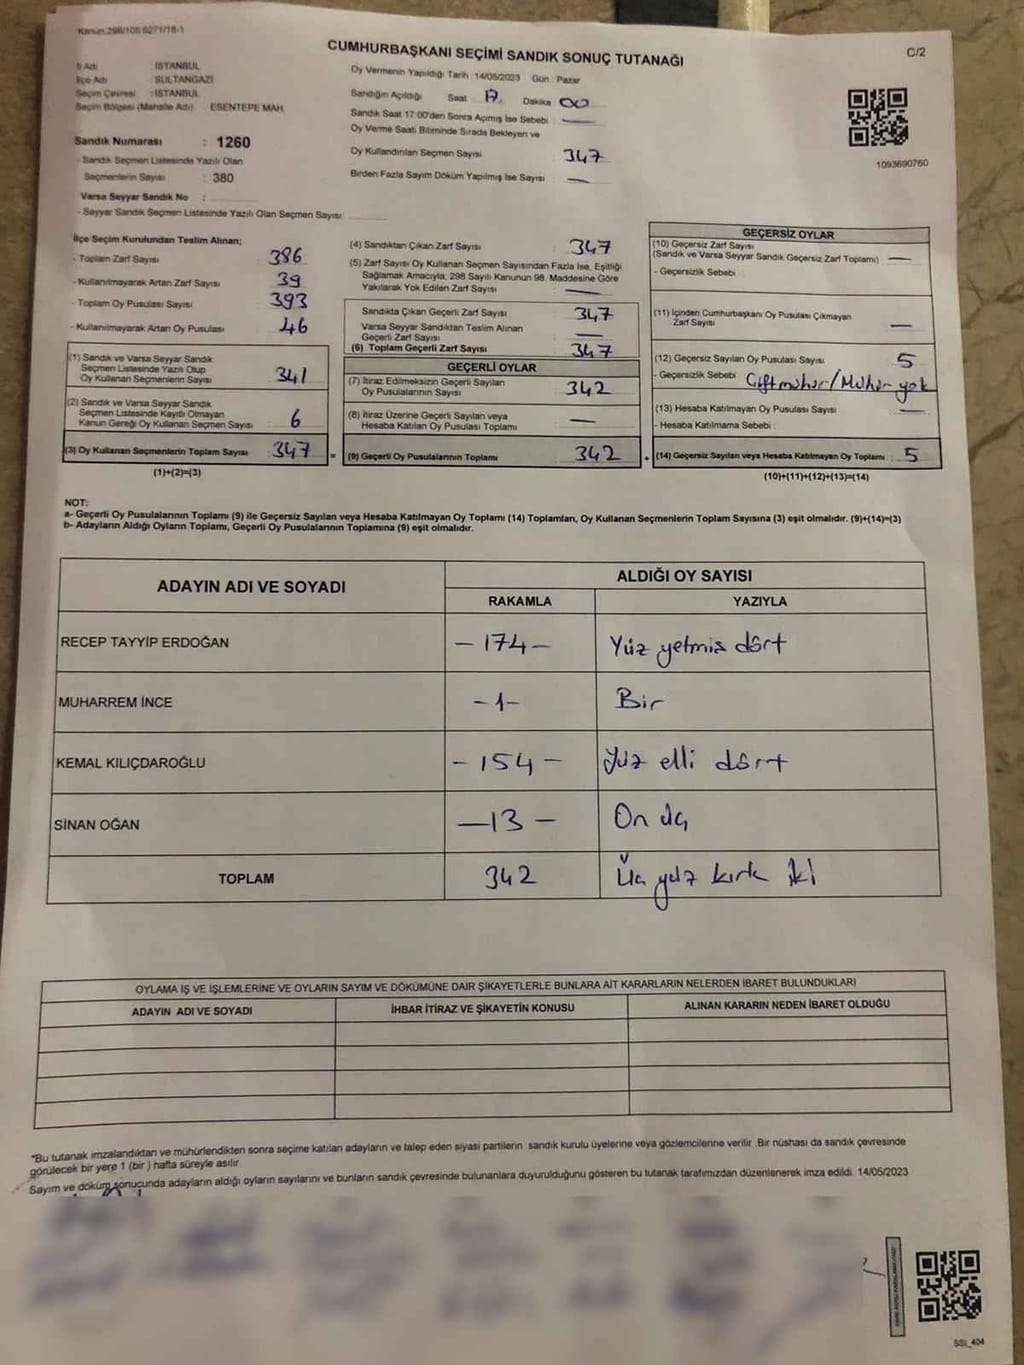 Kanun.298/105,6271/18-1
C/2
CUMHURBAŞKANI SEÇİMİ SANDIK SONUÇ TUTANAĞI
İl Adı İSTANBUL
İlçe Adı SULTANGAZİ
Seçim Çevresi : İSTANBUL
Seçim Bölgesi (Mahalle Adı) : ESENTEPE MAH.
Sandık Numarası : 1260
- Sandık Seçmen Listesinde Yazılı Olan
Seçmenlerin Sayısı : 380
Varsa Seyyar Sandık No :
- Seyyar Sandık Seçmen Listesinde Yazılı Olan Seçmen Sayısı:
Oy Vermenin Yapıldığı Tarih :14/05/2023 Gün : Pazar
Sandığın Açıldığı Saat 17 Dakika 00
Sandık Saat 17:00'den Sonra Açımış İse Sebebi —
Oy Verme Saati Bitiminde Sırada Bekleyen ve
Oy Kullandırılan Seçmen Sayısı 347
Birden Fazla Sayım Döküm Yapılmış İse Sayısı —
1093690760
İlçe Seçim Kurulundan Teslim Alınan;
- Toplam Zarf Sayısı 386
- Kullanılmayarak Artan Zarf Sayısı 39
- Toplam Oy Pusulası Sayısı 393
- Kullanılmayarak Artan Oy Pusulası 46
(1) Sandık ve Varsa Seyyar Sandık
Seçmen Listesinde Yazılı Olup
Oy Kullanan Seçmenlerin Sayısı 341
(2) Sandık ve Varsa Seyyar Sandık
Seçmen Listesinde Kayıtlı Olmayan
Kanun Gereği Oy Kullanan Seçmen Sayısı 6
(3) Oy Kullanan Seçmenlerin Toplam Sayısı 347 =
(1)+(2)=(3)
(4) Sandıktan Çıkan Zarf Sayısı 347
(5) Zarf Sayısı Oy Kullanan Seçmen Sayısından Fazla İse, Eşitliği
Sağlamak Amacıyla; 298 Sayılı Kanunun 98. Maddesine Göre
Yakılarak Yok Edilen Zarf Sayısı —
Sandıkta Çıkan Geçerli Zarf Sayısı 347
Varsa Seyyar Sandıktan Teslim Alınan
Geçerli Zarf Sayısı —
(6) Toplam Geçerli Zarf Sayısı 347
GEÇERLİ OYLAR
(7) İtiraz Edilmeksizin Geçerli Sayılan
Oy Pusulalarının Sayısı 342
(8) İtiraz Üzerine Geçerli Sayılan veya
Hesaba Katılan Oy Pusulası Toplamı —
(9) Geçerli Oy Pusulalarının Toplamı 342
GEÇERSİZ OYLAR
(10) Geçersiz Zarf Sayısı
(Sandık ve Varsa Seyyar Sandık Geçersiz Zarf Toplamı) —
- Geçersizlik Sebebi
(11) İçinden Cumhurbaşkanı Oy Pusulası Çıkmayan
Zarf Sayısı —
(12) Geçersiz Sayılan Oy Pusulası Sayısı 5
- Geçersizlik Sebebi Çift mühür/Mühür yok
(13) Hesaba Katılmayan Oy Pusulası Sayısı —
- Hesaba Katılmama Sebebi :
(14) Geçersiz Sayılan veya Hesaba Katılmayan Oy Toplamı : 5
(10)+(11)+(12)+(13)=(14)
NOT:
a- Geçerli Oy Pusulalarının Toplamı (9) ile Geçersiz Sayılan veya Hesaba Katılmayan Oy Toplamı (14) Toplamları, Oy Kullanan Seçmenlerin Toplam Sayısına (3) eşit olmalıdır. (9)+(14)=(3)
b- Adayların Aldığı Oyların Toplamı, Geçerli Oy Pusulalarının Toplamına (9) eşit olmalıdır.
ADAYIN ADI VE SOYADI
ALDIĞI OY SAYISI
RAKAMLA YAZIYLA
RECEP TAYYİP ERDOĞAN - 174 - Yüz yetmiş dört
MUHARREM İNCE - 1 - Bir
KEMAL KILIÇDAROĞLU - 154 - Yüz elli dört
SİNAN OĞAN - 13 - On üç
TOPLAM 342 Üç yüz kırk iki
OYLAMA İŞ VE İŞLEMLERİNE VE OYLARIN SAYIM VE DÖKÜMÜNE DAİR ŞİKAYETLERLE BUNLARA AİT KARARLARIN NELERDEN İBARET BULUNDUKLARI
ADAYIN ADI VE SOYADI İHBAR İTİRAZ VE ŞİKAYETİN KONUSU ALINAN KARARIN NEDEN İBARET OLDUĞU
*Bu tutanak imzalandıktan ve mühürlendikten sonra seçime katılan adayların ve talep eden siyasi partilerin sandık kurulu üyelerine veya gözlemcilerine verilir. Bir nüshası da sandık çevresinde
görülecek bir yere 1 (bir) hafta süreyle asılır.
Sayım ve döküm sonucunda adayların aldığı oyların sayılarını ve bunların sandık çevresinde bulunanlara duyurulduğunu gösteren bu tutanak tarafımızdan düzenlenerek imza edildi. 14/05/2023
SSI_404